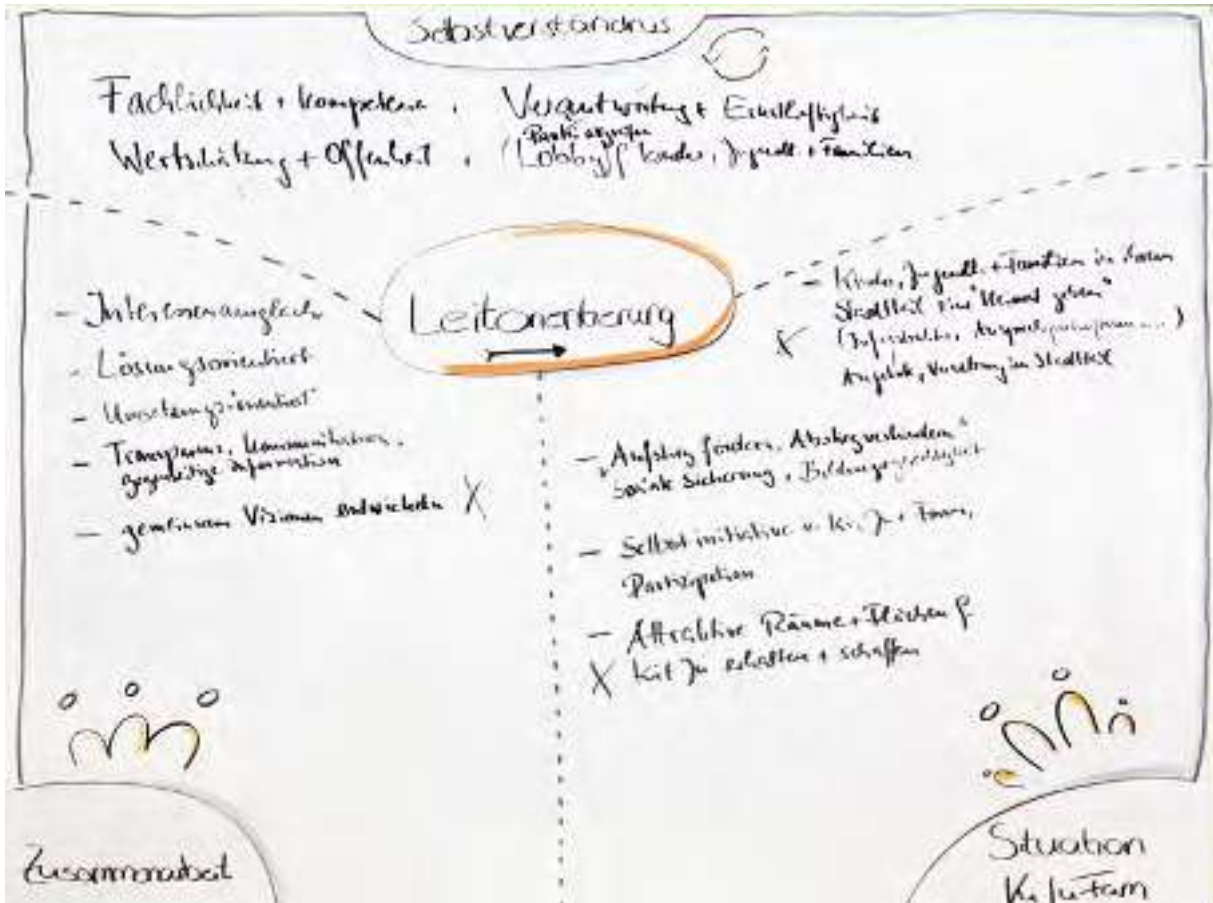 Selbstverständnis
Fachlichkeit + Kompetenz , Verantwortung + Ernsthaftigkeit
Partei ergreifen
Wertschätzung + Offenheit , (Lobby) f Kinder, Jugendl. + Familien
Leitorientierung
- Interessenausgleich
- Lösungsorientiert
- Umsetzungsorientiert
- Transparenz, Kommunikation,
gegenseitige Information
- gemeinsam Visionen entwickeln X
- Kinder, Jugendl. + Familien in
Stadtteil eine "Heimat geben"
X (Infrastruktur, Ansprechpartner:innen ...)
Angebote, Vernetzung im Stadtteil
- "Aufstieg fördern, Abstieg verhindern"
soziale Sicherung, Bildungsgerechtigkeit
- Selbstinitiative v. Ki, Ju + Fam,
Partizipation
- Attraktive Räume + Flächen f.
X Ju erhalten + schaffen
Zusammenarbeit
Situation
Ki/Ju+Fam